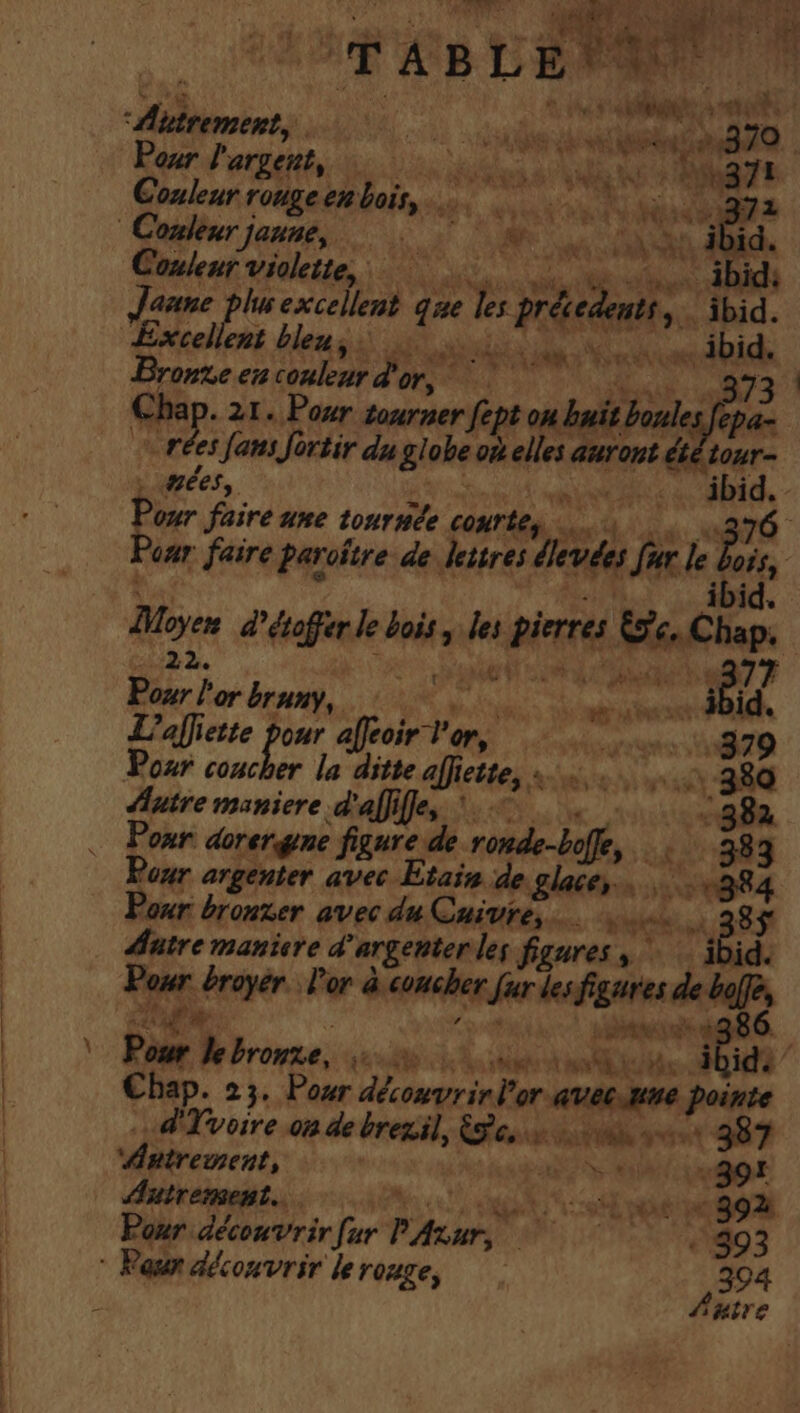 TABLE
Autrement, 370
Pour l'argent, 371
Couleur rouge en bois, 372
Couleur jaune, ibid.
Couleur violette, ibid.
Jaune plus excellent que les précedents, ibid.
Excellent bleu, ibid.
Bronze en couleur d'or, 373
Chap. 21. Pour tourner ſept ou huit boules ſepa-
rées ſans ſortir du globe où elles auront été tour-
nées, ibid.
Pour faire une tournée courte, 376
Pour faire paroître de lettres élevées ſur le bois,
ibid.
Moyen d'étoffer le bois, les pierres &c. Chap.
22. 377
Pour l'or bruny, ibid.
L'aſſiette pour aſſeoir l'or, 379
Pour coucher la ditte aſſiette, 380
Autre maniere d'aſſiſſe, 382
Pour dorer une figure de ronde-boſſe, 383
Pour argenter avec Etain de glace, 384
Pour bronzer avec du Cuivre, 385
Autre maniere d'argenter les figures, ibid.
Pour broyer l'or à coucher ſur les figures de boſſe,
386
Pour le bronze, ibid.
Chap. 23. Pour découvrir l'or avec une pointe
d'Yvoire ou de brezil, &c. 387
Autrement, 391
Autrement. 392
Pour découvrir ſur l'Azur, 393
Pour découvrir le rouge, 394
Autre